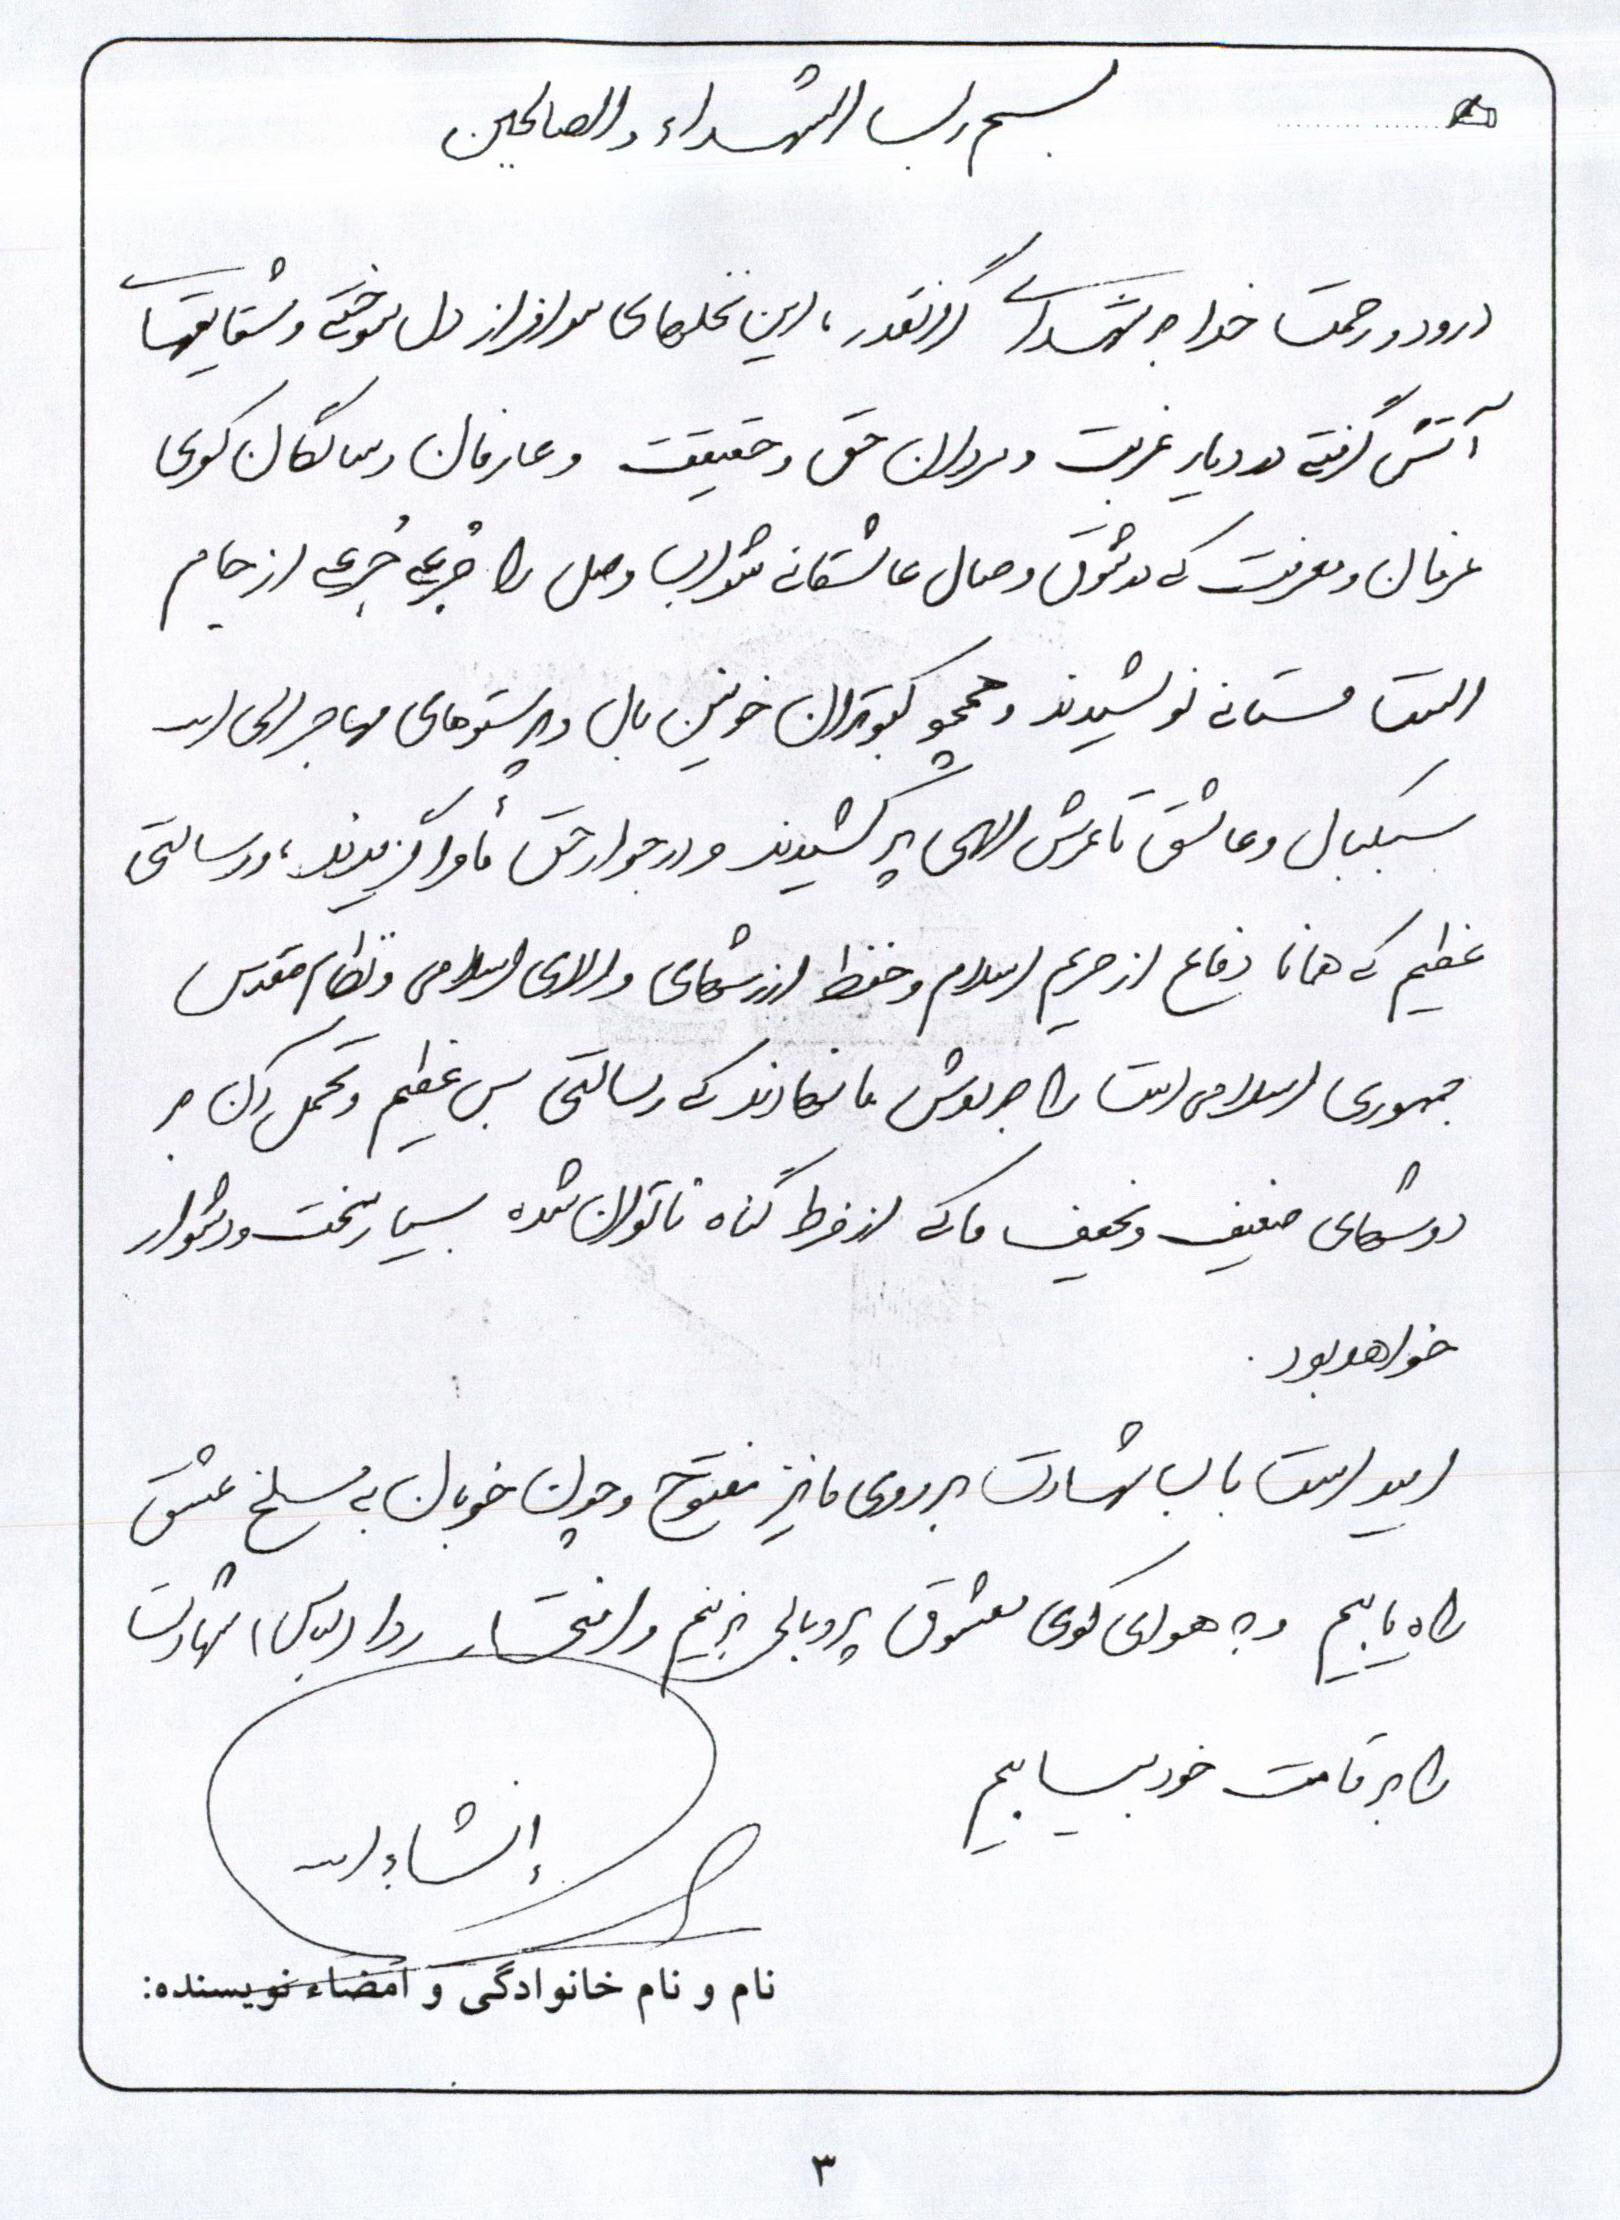 بسم رب الشهداء والصالحین
درود و رحمت خدا بر شهدای گرانقدر، این نخلهای سرافراز دل سوخته و شقایقهای
آتش گرفته در دیار غربت و مردان حق و حقیقت و عارفان و سالکان کوی
عرفان و معرفت که در شوق وصال عاشقانه شراب وصل را جُرعه جُرعه از جام
الست مستانه نوشیدند و همچو کبوتران خونین بال و پرستوهای مهاجر الی الله
سبکبال و عاشق تا عرش الهی پر کشیدند و در جوار حق مأوا گزیدند، و رسالتی
عظیم که همانا دفاع از حریم اسلام و حفظ ارزشهای والای اسلامی و نظام مقدس
جمهوری اسلامی است را بر دوش ما نهادند که رسالتی بس عظیم و تحمل آن بر
دوشهای ضعیف و نحیف ما که از فرط گناه ناتوان شده بسیار سخت و دشوار
خواهد بود.
امید است باب شهادت بر روی ما نیز مفتوح و چون خوبان به مسلخ عشق
راه یابیم و به هوای کوی معشوق پر و بالی بزنیم و افتخار ردا (لباس) شهادت
را بر قامت خود بیسابیم
إنشاءالله
نام و نام خانوادگی و امضاء نویسنده:
۳